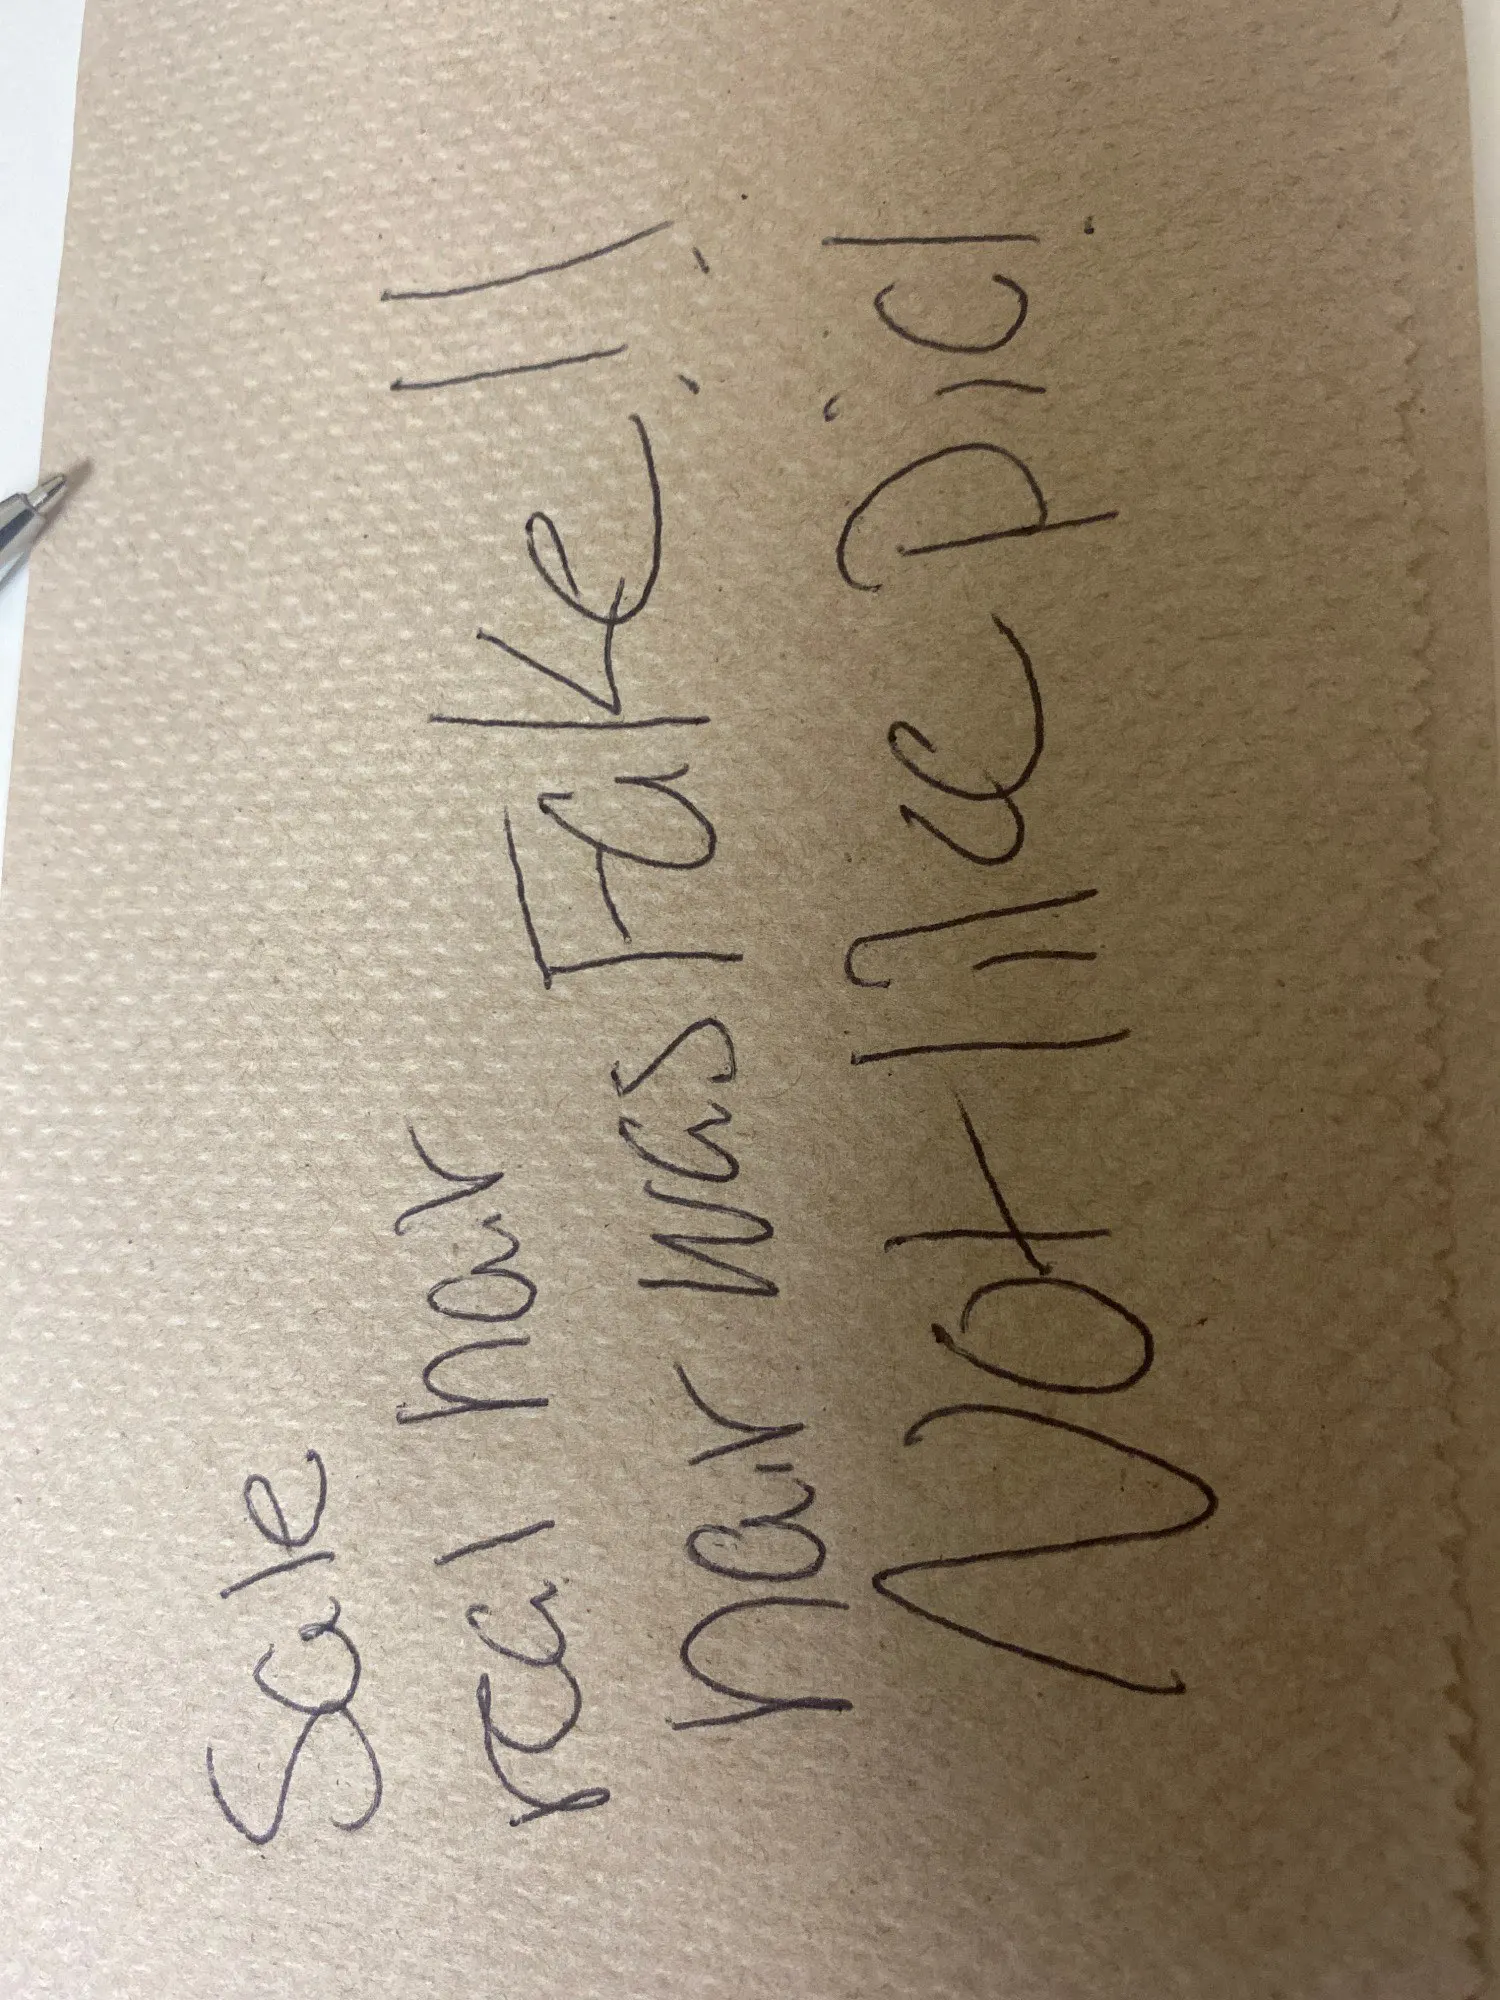 Sale
real hair
hair was Fake!!
Not like pic!